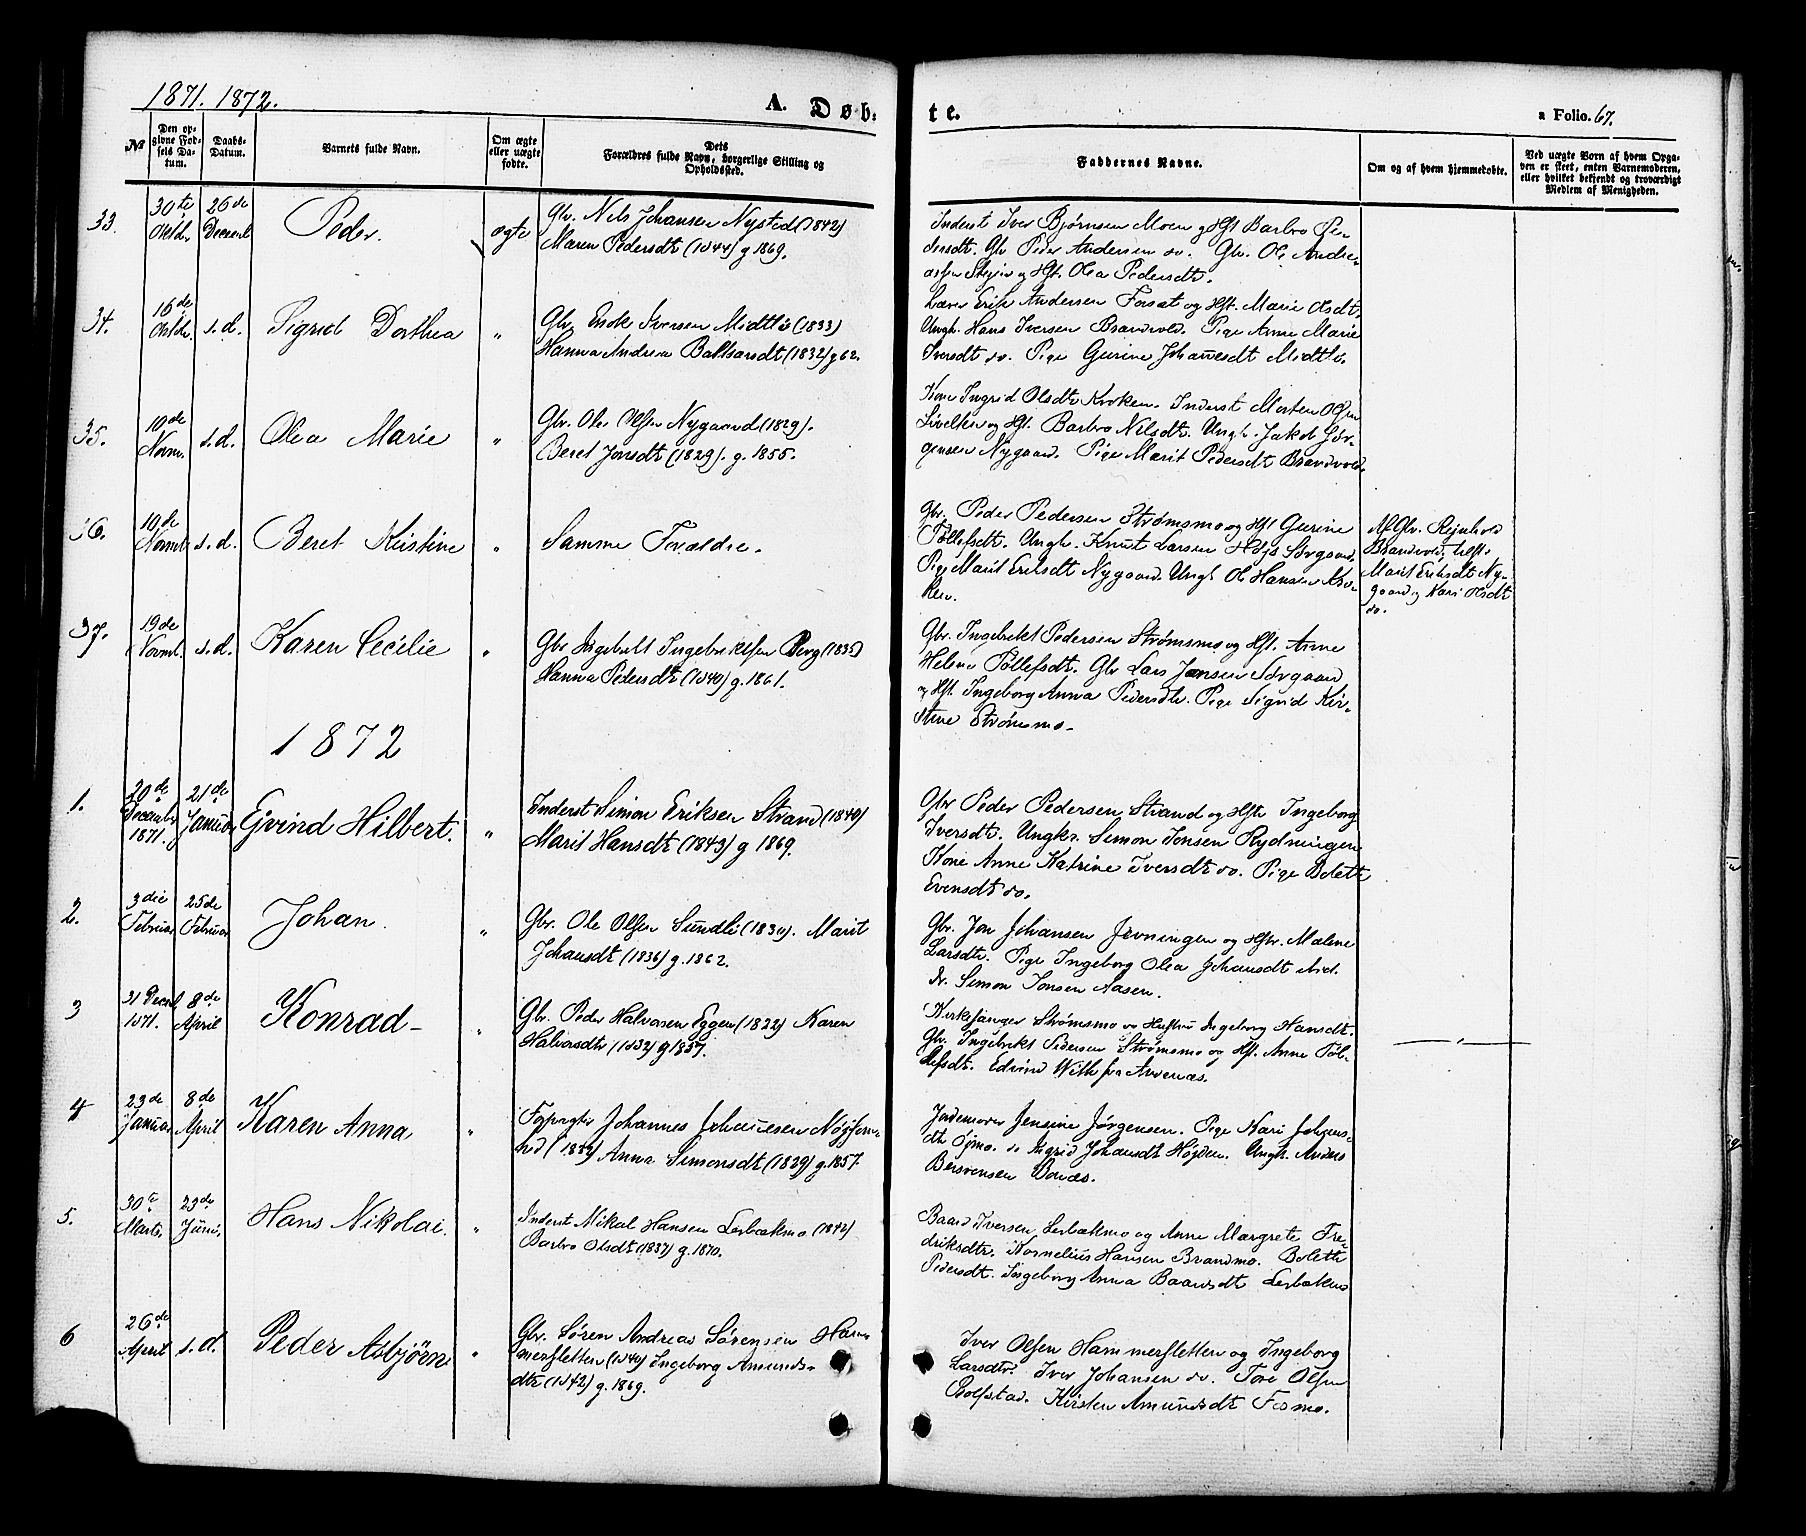 1871. 1872.
A. Døb-
te.
a Folio. 67.
No
Den op-
givne Fød-
sels Da-
tum.
Daabs-
Datum.
Barnets fulde Navn.
Om ægte
eller uægte
fødte.
Dets
Forældres fulde Navn, borgerlige Stilling og
Opholdssted.
Faddernes Navne.
Om og af hvem hjemmedøbte.
Ved uægte Børn af hvem Opga-
ven er skeet, enten Barnemoderen,
eller hvilket bekjendt og troværdigt
Medlem af Menigheden.
33.
30te
Oktbr.
26de
Decemb
Peder.
ægte
Gbr. Nils Johansen Nysted (1842)
Maren Pedersdtr (1844) g 1869.
Inderst Iver Bjørnsen Moen og Hst Barbro Pe-
dersdt. Gbr Peder Andersen do. Gbr. Ole Andre-
assen og Hst. Olea Pedersdt.
34.
16de
Oktbr.
s.d.
Sigrid Dorthea
"
Gbr. Enok Iversen Midtli (1833)
Hanna Andrea Balthasardt (1832) g 62.
Lærer Erik Andersen Forsæt og Hst. Marie Olsdt.
Ungk. Hans Iversen Brandvold. Pige Anne Marie
Iversdt do. Pige Gurine Johannesdt Midtli.
35.
10de
Novbr.
s.d.
Olea Marie
"
Gbr. Ole Olsen Nygaard (1829).
Beret Jonsdt (1829). g. 1855.
Kone Ingrid Olsdtr Kroken. Inderst Morten Olsen
og Hst. Barbro Nilsdt. Ungk. Jakob Jør-
gensen Nygaard. Pige Marit Pedersdt Brandvold.
36.
10de
Novmb.
s.d.
Beret Kristine
"
Samme Forældre.
Gbr. Peder Pedersen Strømsmo og Hst Gurine
Tollefsdt. Ungk. Knut Larsen Sørgaard.
Pige Marit Eriksdt Nygaard. Ungk Ole Hansen Kro-
ken.
Af Gbr. Rejnhold
Brandvold,
Marit Eriksdt Ny-
gaard og Kari Olsdt
do.
37.
19de
Novmb.
s.d.
Karen Cecilie
"
Gbr Ingebrikt Ingebriktsen Berg (1835)
Hanna Pedersdt (1840) g. 1861.
Gbr. Ingebrikt Pedersen Strømsmo og Hst. Anne
Helene Tollefsdt. Gbr Lars Jansen Sørgaard
og Hst. Ingeborg Anna Pedersdtr. Pige Sigrid Kir-
stine Strømsmo.
1872
1.
20de
Decembr
1871.
21de
Januar
Ejvind Hilbert.
"
Inderst Simon Eriksen Strand (1840)
Marit Hansdt (1843) g 1869.
Gbr Peder Pedersen Strand og Hst. Ingeborg
Iversdt. Ungkr. Simon Jonsen Rydningen
Kone Anne Katrine Iversdt do. Pige Bolette
Evensdt do.
2.
3die
Februar
25de
Februar
Johan.
"
Gbr. Ole Olsen Sundli (1834). Marit
Johansdt (1836) g. 1862.
Gbr. Jon Johansen Jevningen og Hst. Malene
Larsdt. Pige Ingeborg Olea Johansdt
Simon Jonsen Aasen.
3
21 Decmb
1871.
8de
April
Konrad
"
Gbr. Peder Halvorsen Eggen (1822) Karen
Halvorsdtr (1832) g 1857.
Kirkesanger Strømsmo og Hustru Ingeborg Hansdt.
Gbr. Ingebrikt Pedersen Strømsmo og Hst. Anne Tol-
lefsdt. Edvind With fra Andenæs.
4
23de
Januar
8de
April
Karen Anna
"
Forpagter Johannes Johannesen
(1832) Anna Simonsdt (1829) g. 1857.
Jordemoder Jensine Jørgensen. Pige Kari Johans-
dt Øjmo. do Ingrid Johansdt Højden. Ungk. Anders
Bersvensen Bonæs.
5.
30te
Marts.
23de
Juni.
Hans Nikolai.
"
Inderst Mikal Hansen Lerbækmo (1842)
Barbro Olsdt (1837) g. 1870.
Baard Iversen Lerbækmo og Anne Margrete Fre-
driksdtr. Kornelius Hansen Brandmo. Bolette
Pedersdt. Ingeborg Anna Baardsdt Lerbækmo
6
26de
April
s.d.
Peder Asbjörn
"
Gbr. Søren Andreas Sørensen Ham-
mersletten (1840) Ingeborg Amunds-
dtr (1842) g. 1869.
Iver Olsen Hammersletten og Ingeborg
Larsdtr. Iver Johansen do. Tore Olsen
Rolfstad. Kirsten Amundsdt Fosmo.